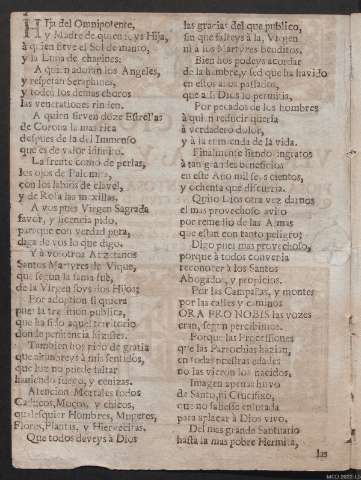 HIja del Omnipotente,
y Madre de quien soys Hija,
à quien sirve el Sol de manto,
y la Luna de chapines:
A quien adoran los Angeles,
y respetan Serafines,
y todos los demas choros
las veneraciones rinden.
A quien sirven doze Estrellas
de Corona la mas rica
despues de la del Immenso
que es de valor infinito.
La frente como de perlas,
los ojos de Paloma,
con los labios de clavel,
y de Rosa las mexillas.
A vos pues Virgen Sagrada
favor, y licencia pido,
paraque con verdad pura,
diga de vos lo que digo.
Y à vosotros
Santos Martyres de Vique,
que segun la fama fuè,
de la Virgen soys dos Hijos;
Por adoption si quiera
pues la tradition publica,
que ha sido aquel territorio
don de penitencia hizistes.
Tambien hos pido de gracia
que alumbreys à mis sentidos,
que luz no puede faltar
haziendo fuego, y cenizas.
Atencion Mortales todos
Caducos, Moços, y chicos,
qualesquier Hombres, Mugeres,
Flores, Plantas, y Hiervecitas.
Que todos deveys à Dios
las gracias del que publico,
sin que falteys à la Virgen
ni à los Martyres benditos.
Bien hos podeys acordar
de la hambre, y sed que ha havido
en estos años passados,
que a si Dios lo permitia,
Por pecados de los hombres
à quien reducir queria
à verdadero dolor,
y à la enmienda de la vida.
Finalmente siendo ingratos
à tan grandes beneficios
en este Año mil seiscientos,
y ochenta que discurria.
Quiso Dios otra vez darnos
el mas provechoso aviso
por remedio de las Almas
que estan con tanto peligro;
Digo pues mas provechoso,
porque à todos convertia
reconocer à los Santos
Abogados, y propicios.
Por las Campañas, y montes
por las calles y caminos
ORA PRO NOBIS las vozes
eran, segun percibimos.
Porque las Processiones
que las Parrochias hazian,
en todas nuestras edades
no las vieron los nacidos,
Imagen apenas huvo
de Santo, ni Crucifixo,
que no saliesse enlutada
para aplacar à Dios vivo.
Del mas grande Santuario
hasta la mas pobre Hermita,
las